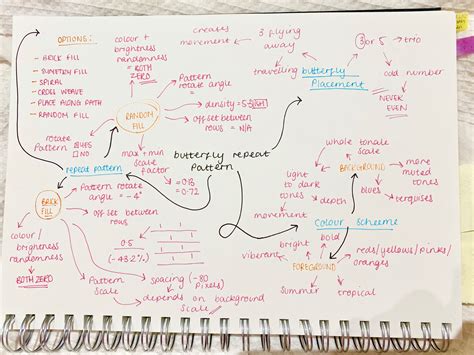 OPTIONS:
- BRICK FILL
- SYMETRY FILL
- SPIRAL
- CROSS WEAVE
- PLACE ALONG PATH
- RANDOM FILL
colour +
brightness
randomness
= BOTH
ZERO
creates
movement
3 flying
away
travelling
butterfly
Placement
3 or 5 → trio
odd number
NEVER
EVEN
Pattern
rotate
angle =
density = 5
off set between
rows = N/A
RANDOM
FILL
rotate
Pattern
YES
NO
max + min
scale
factor
= 0.18
= 0.72
butterfly repeat
Pattern
repeat pattern
BRICK
FILL
Pattern rotate
angle = -4°
off set between
rows
0.5
(-43.2%)
colour /
brightness
randomness
BOTH ZERO
Pattern
Scale
spacing (-80
Pixels)
depends on background
Scale
whole tonale
scale
BACKGROUND
more
muted
tones
light
to dark
tones
depth
blues
terquises
movement
colour scheme
bright
bold
viberant
FOREGROUND
reds/yellows/pinks/
oranges
summer
tropical